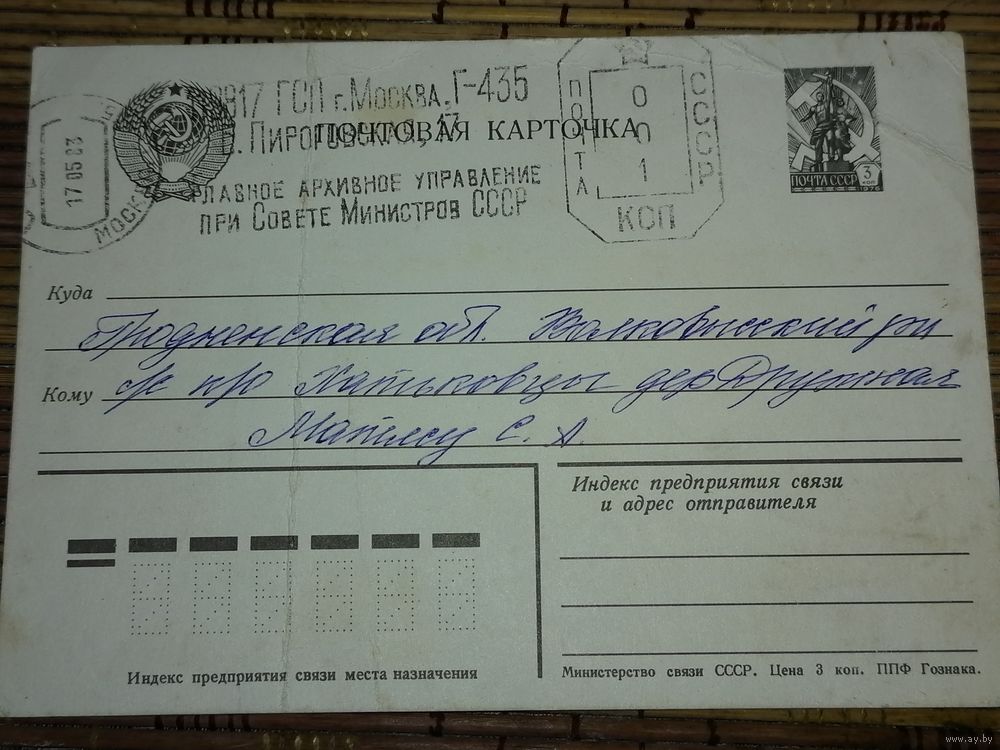 ГСП г. Москва, Г-435
Пироговская, 17
ПОЧТОВАЯ КАРТОЧКА
ГЛАВНОЕ АРХИВНОЕ УПРАВЛЕНИЕ
ПРИ СОВЕТЕ МИНИСТРОВ СССР
17 05 83
МОСКВА
ПОЧТА
СССР
0
0
1
КОП
ПОЧТА СССР
3 КОП
1976
Куда
Гродненская обл. Волковысский р-н
Кому
п/о Хатьковцы дер Дружная
С. А.
Индекс предприятия связи
и адрес отправителя
Индекс предприятия связи места назначения
Министерство связи СССР. Цена 3 коп. ППФ Гознака.
www.ay.by